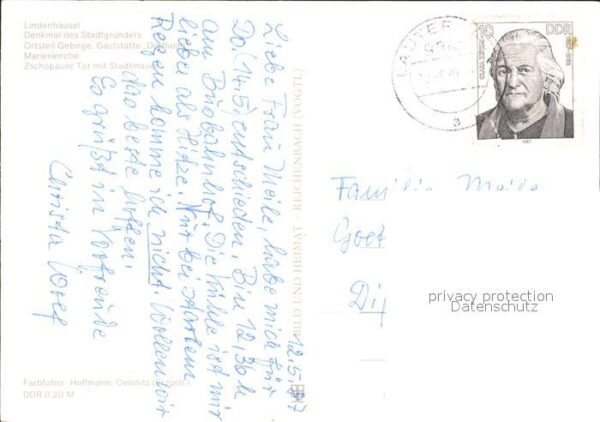 Lindenhäusel
Denkmal des Stadtgründers
Ortsteil Gebirge, Gaststätte
Marienkirche
Zschopauer Tor mit Stadtmauer
12.5.87
Liebe Frau Meile, habe mich für
Do. (14.5) entschieden. Bin 12,30 h
am Busbahnhof. Die Kühle ist mir
lieber als Hitze. Nur bei starkem
Regen komme ich nicht. Wollen wir
das beste hoffen.
Es grüßt in Vorfreude
Christa
BILD UND HEIMAT · REICHENBACH (VOGTL)
Farbfotos: Hoffmann, Oelsnitz (Erzgeb.)
DDR 0,20 M
LAUTER
a
10
DDR
1987
Familie Meile
Goet
Di
privacy protection
Datenschutz